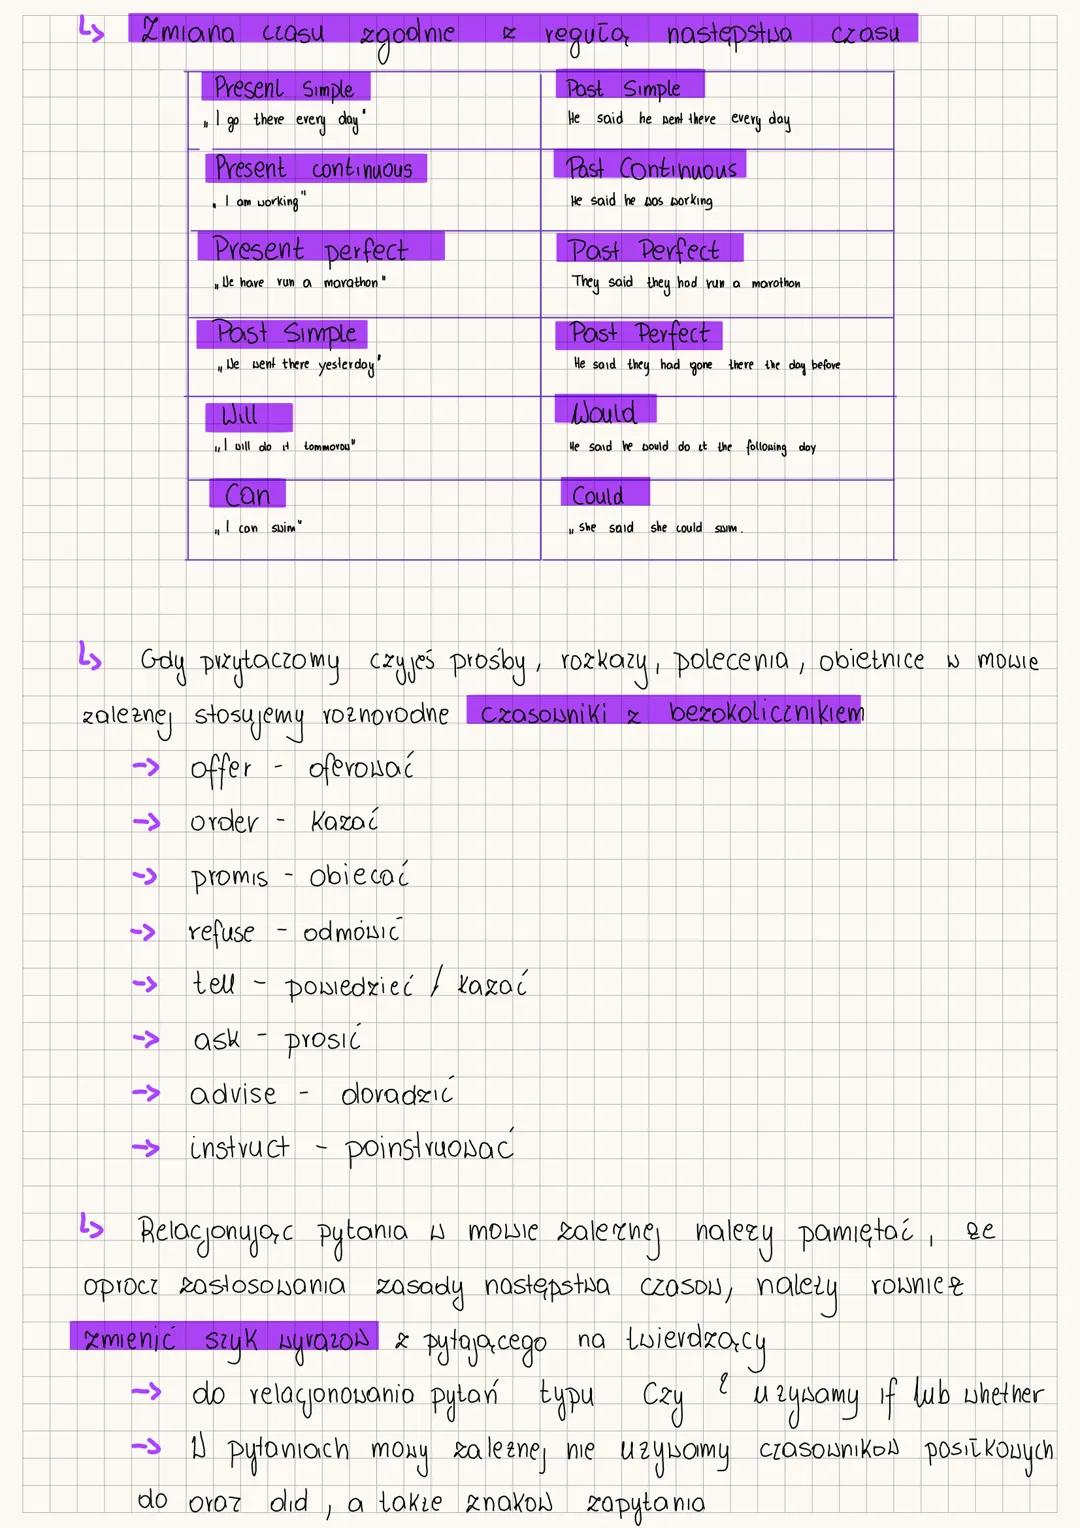 Zmiana czasu zgodnie z regułą następstwa czasu
Present Simple
Past Simple
„I go there every day"
He said he went there every day
Present continuous
Past Continuous
„I am working"
He said he was working
Present perfect
Past Perfect
„We have run a marathon"
They said they had run a marathon
Past Simple
Past Perfect
„We went there yesterday"
He said they had gone there the day before
Will
Would
„I will do it tommorow"
He said he would do it the following day
Can
Could
„I can swim"
„She said she could swim.
Gdy przytaczamy czyjeś prośby, rozkazy, polecenia, obietnice w mowie
zależnej stosujemy roznorodne czasowniki z bezokolicznikiem
→ offer - oferować
→ order - kazać
→ promis - obiecać
→ refuse - odmówić
→ tell - powiedzieć / kazać
→ ask - prosić
→ advise - doradzić
→ instruct - poinstruować
Relacjonując pytania w mowie zależnej należy pamiętać, że
oprocz zastosowania zasady następstwa czasow, należy rownież
zmienić szyk wyrazow z pytającego na twierdzący
→ do relacjonowania pytań typu Czy ? używamy if lub whether
→ W pytaniach mowy zależnej nie używamy czasownikow posiłkowych
do oraz did, a także znakow zapytania